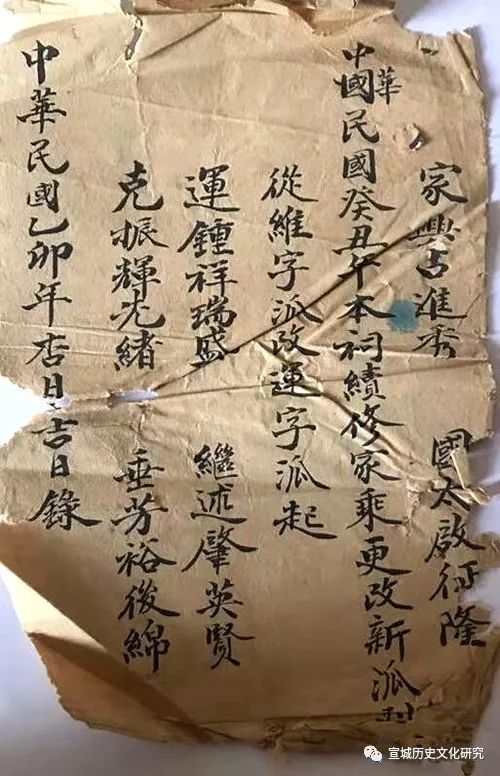 家興吉進秀 國太啟征隆
中華國民國癸丑年本祠續修家乘更改新派
從維字派改運字派起
運鍾祥瑞盛 繼述肇英賢
克振輝光緒 垂芳裕後綿
中華民國乙卯年杏月吉日錄
宣城历史文化研究